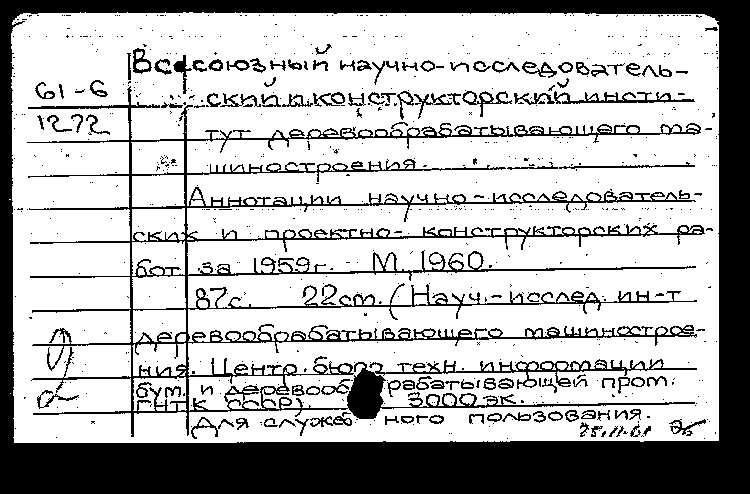 Всесоюзный научно-исследователь-
61-6
ский и конструкторский инсти-
1272
тут деревообрабатывающего ма-
шиностроения.
Аннотации научно-исследователь-
ских и проектно-конструкторских ра-
бот за 1959г. М., 1960.
87с. 22cm. (Науч.-исслед. ин-т
деревообрабатывающего машинострое-
ния. Центр. бюро техн. информации
бум. и деревообрабатывающей пром.
ГНТК СССР). 3000 эк.
Для служебного пользования.
25.11.61